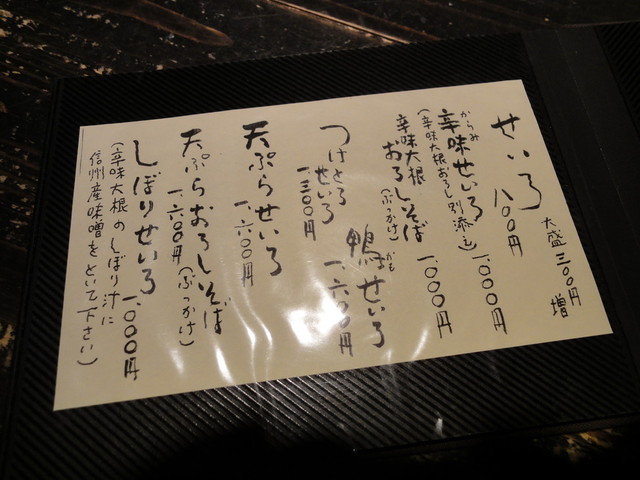 せいろ 八〇〇円
大盛三〇〇円増
からみ
辛味せいろ 一、〇〇〇円
(辛味大根おろし別添え)
辛味大根
おろしそば 一、〇〇〇円
(ぶっかけ)
かも
鴨せいろ 一、六〇〇円
つけとろ
せいろ
一、三〇〇円
天ぷらせいろ
一、六〇〇円
天ぷらおろしそば
一、六〇〇円(ぶっかけ)
しぼりせいろ 一、〇〇〇円
(辛味大根のしぼり汁に
信州産味噌をといて下さい)